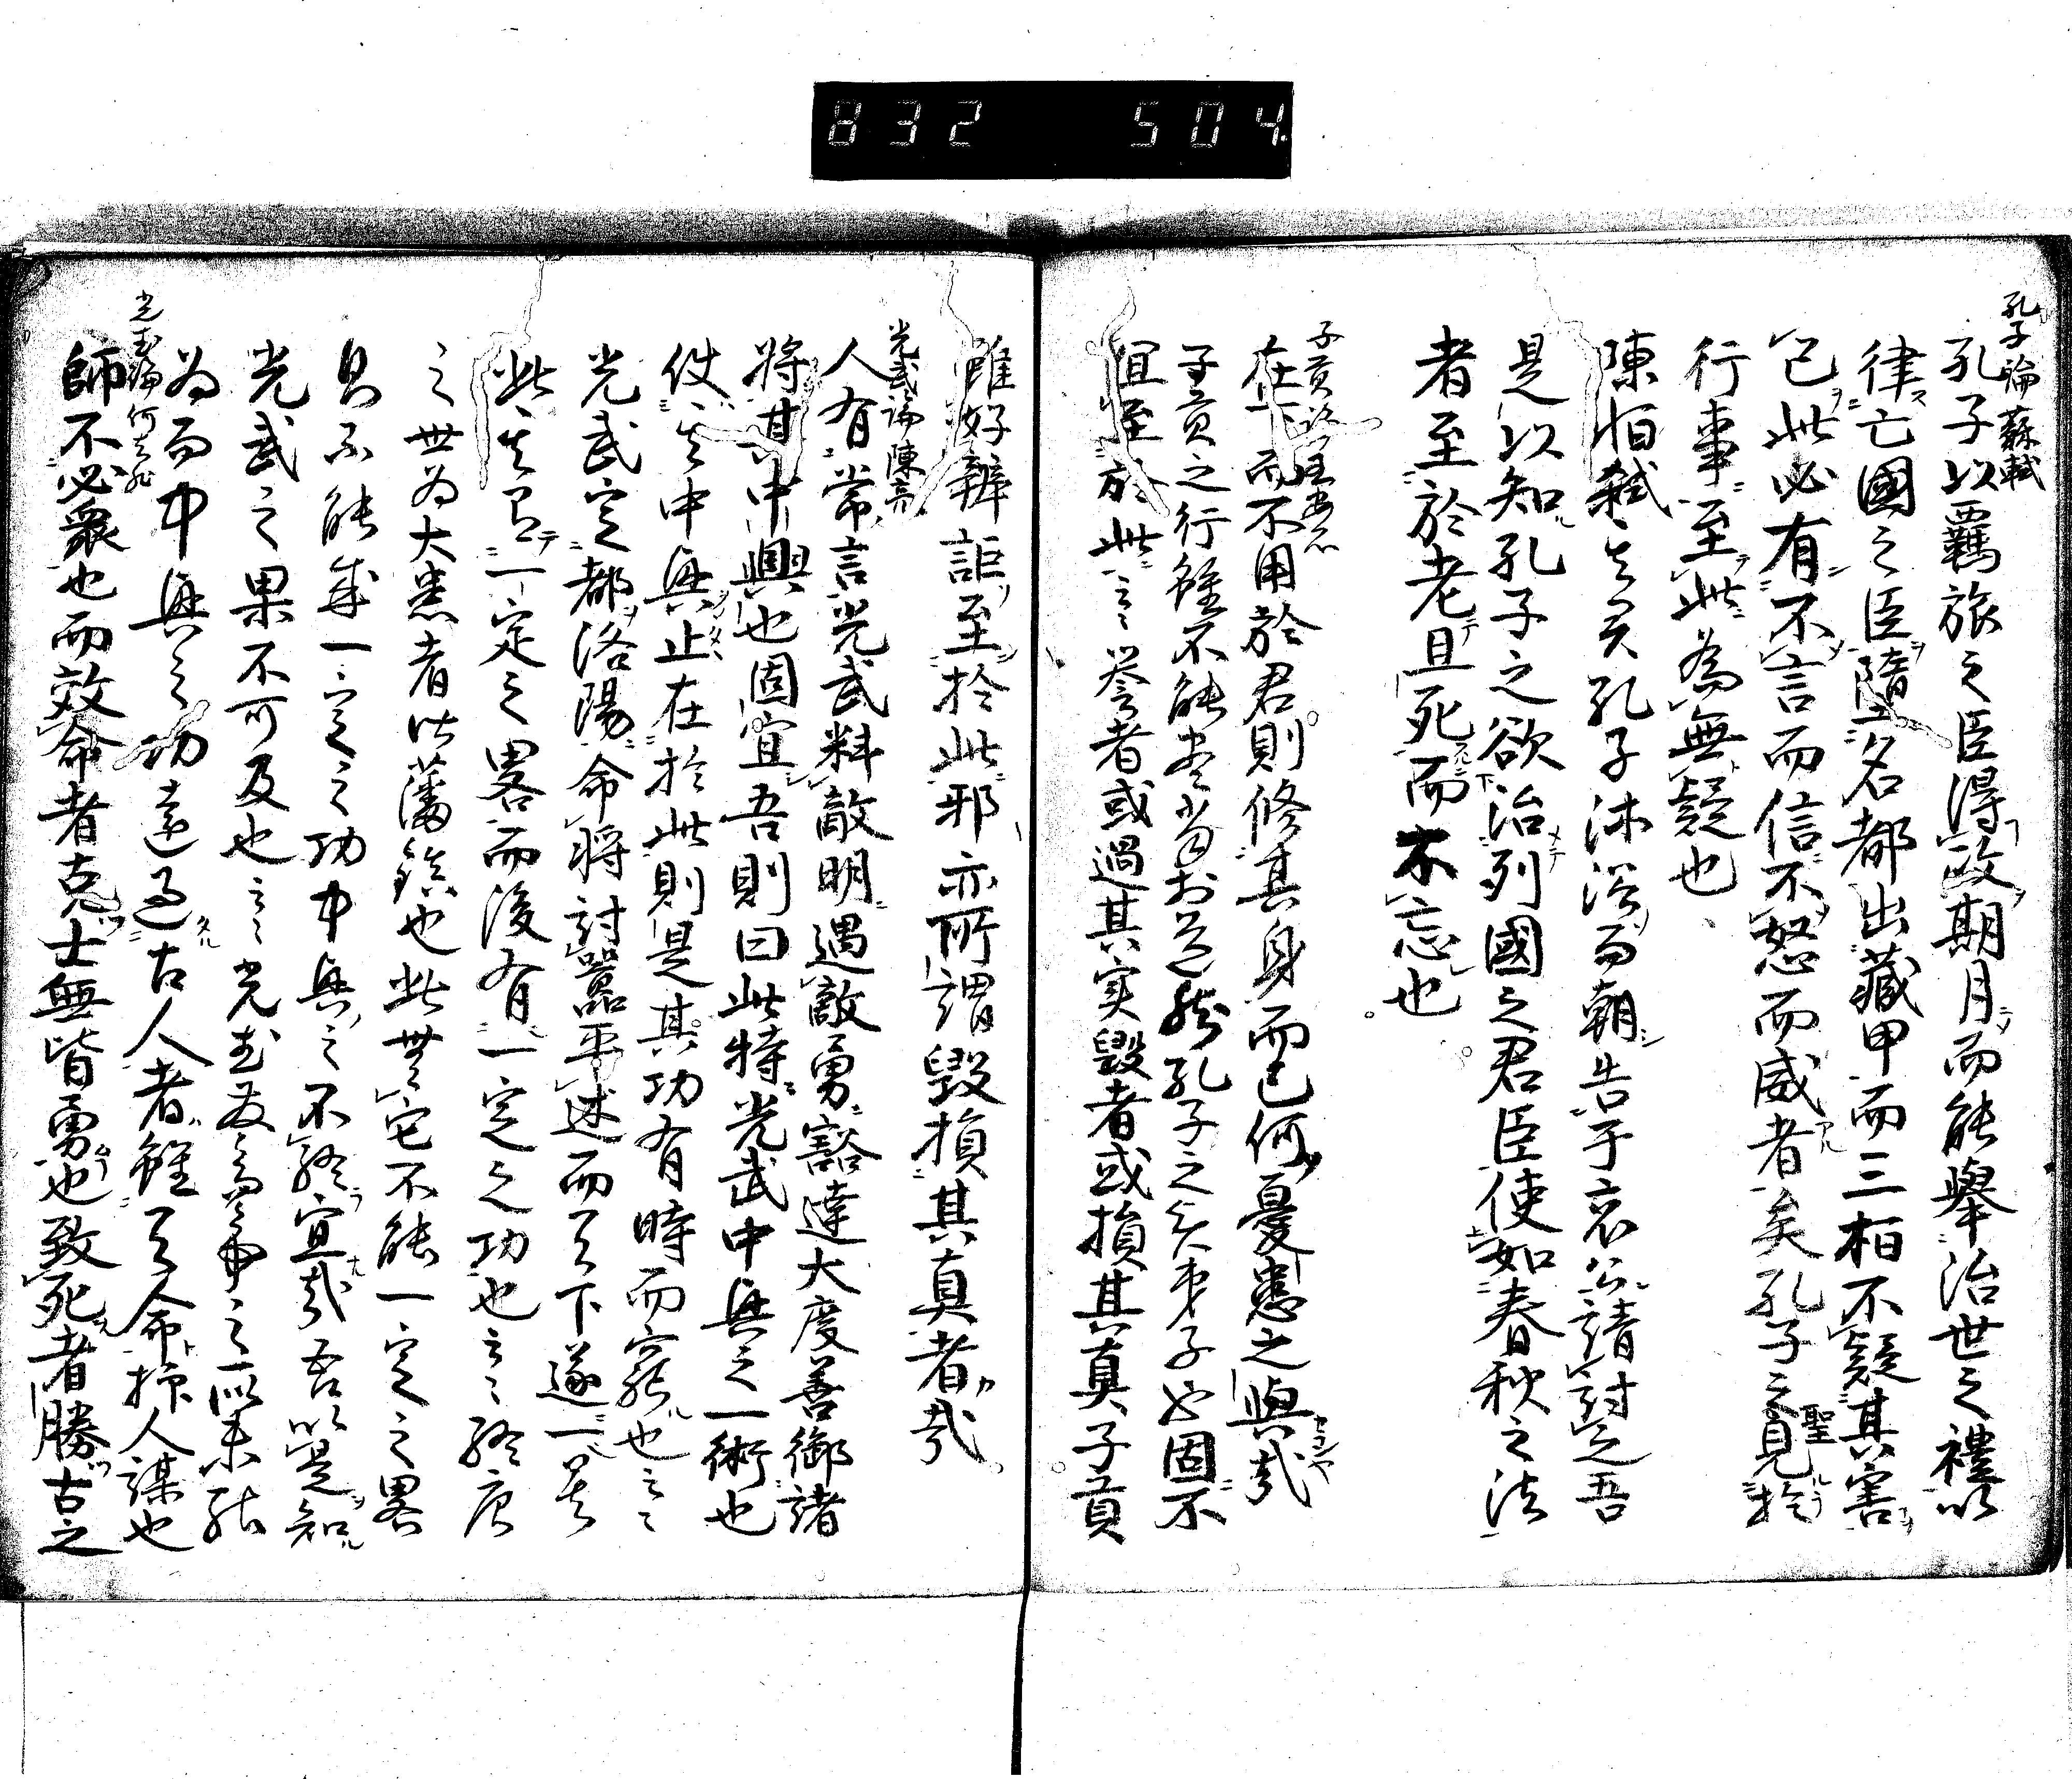 832 504
孔子論 蘇軾
孔子以羈旅之臣得政期月而能舉治世之禮以
律亡國之臣隳名都出藏甲而三桓不疑其害
己此必有不言而信不怒而威者矣孔子之聖見於
行事至此為無疑也
陳恒弑其君孔子沐浴而朝告于哀公請討之吾
是以知孔子之欲治列國之君臣使如春秋之法
者至於老且死而不忘也
子貢論 王安石
在下而不用於君則修其身而已何憂患之與哉
子貢之行雖不能盡當於道然孔子之賢弟子也固不
宜至於此云云譽者或過其実毀者或損其真子貢
雖好辯詎至於此邪亦所謂毀損其真者哉
光武論 陳亮
人有常言光武料敵明遇敵勇豁達大度善御諸
將其中興也固宜吾則曰此特光武中興之一術也
使其中興止在於此則是其功有時而窮也云云
光武定都洛陽命將討囂平述而天下遂一
此其有一定之畧而後有一定之功也云云終唐
之世為大患者皆藩鎮也此無它不能一定之畧
則不能成一定之功中興之不終宜哉吾以是知
光武之果不可及也云云光武
為而中興之功遠過古人者雖天命抑人謀也
光武論 何去非
師不必衆也而效命者克士無皆勇也致死者勝古之